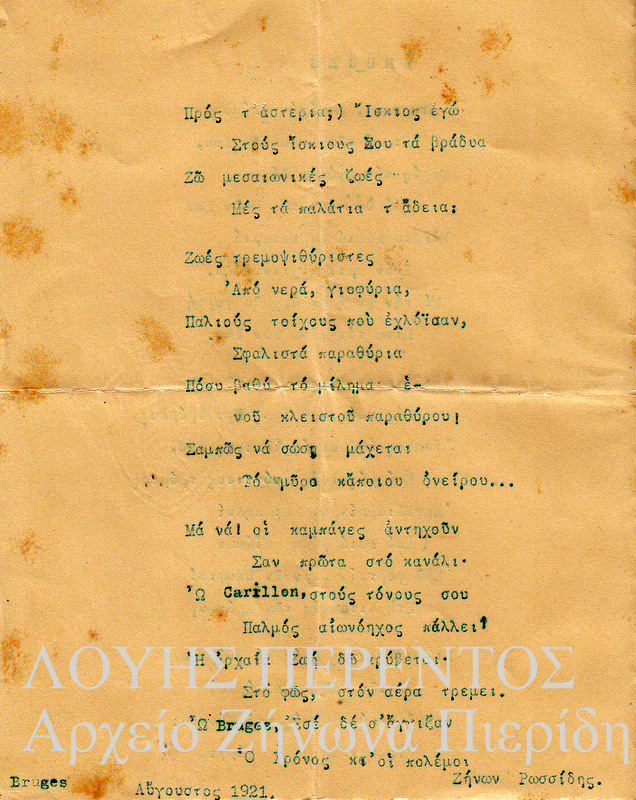 Πρός τ'ἀστέρια;) Ἴσκιος ἐγώ
Στούς ἴσκιους Σου τά βράδυα
Ζῶ μεσαιωνικές ζωές
Μές τά παλάτια τ'ἄδεια;
Ζωές τρεμοψιθύριστες
Ἀπό νερά, γιοφύρια,
Παλιούς τοίχους πού ἐχλόϊσαν,
Σφαλιστά παραθύρια
Πόσυ βαθύ τό μίλημα ἑ-
νοῦ κλειστοῦ παραθύρου!
Σαμπῶς νά σώσῃ μάχεται
Τό μῦρο κἄποιου ὀνείρου...
Μά νά! οἱ καμπάνες ἀντηχοῦν
Σαν πρῶτα στό κανάλι·
Ὦ Carillon, στούς τόνους σου
Παλμός αἰωνόηχος πάλλει!
Ἡ ἀρχαία Ζωή δέ κρύβεται·
Στό φῶς, στόν ἀέρα τρεμει.
Ὦ Bruges, Ἐσέ δέ σ'ἄγγιξαν
Ὁ Χρόνος κι'οἱ πολέμοι
Bruges Αὔγουστος 1921. Ζήνων Ρωσσίδης.
ΛΟΥΗΣ ΠΕΡΕΝΤΟΣ
Αρχείο Ζήνωνα Πιερίδη